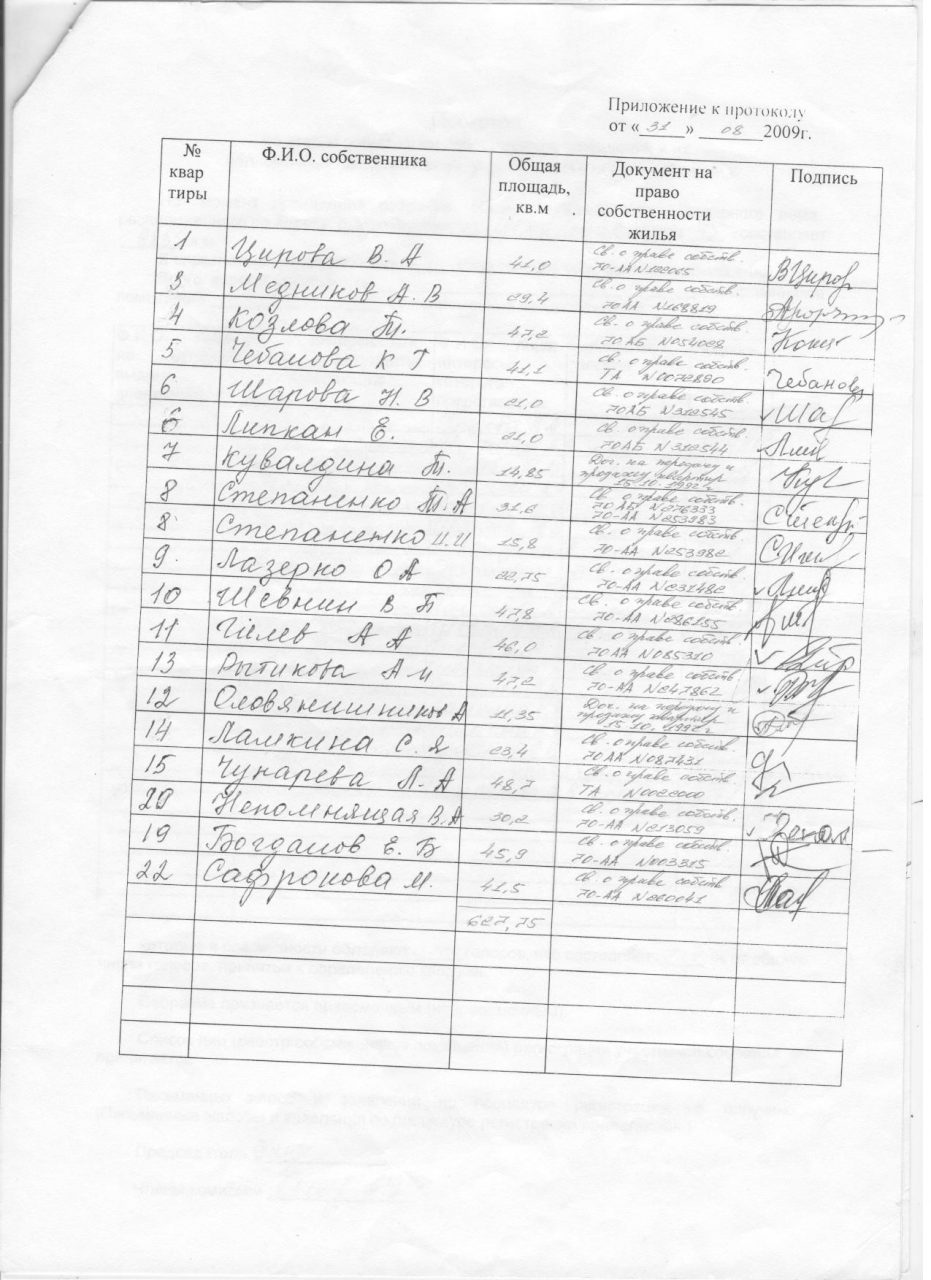 Приложение к протоколу
от « 31 » 08 2009г.
№ квартиры Ф.И.О. собственника Общая площадь, кв.м Документ на право собственности жилья Подпись
1 Цирова В. А 41,0 Св. о праве собств.
70-АА N122065
3 Медников А. В 29,4 Св. о праве собств.
70АА N168819
4 Козлова Т. 47,2 Св. о праве собств.
70АБ N054028
5 Чебанова К Т 41,1 Св. о праве собств.
ТА N0072890 Чебанова
6 Шарова Н. В 21,0 Св. о праве собств.
70АБ N312545
6 Липкан Е. 21,0 Св. о праве собств.
70АБ N312544
7 Кувалдина Т. 14,85 Дог. на передачу и
продажу квартир
15.10.1992 г
8 Степаненко Т. А 31,6 Св. о праве собств.
70АБ N276333
70-АА N253983
8 Степаненко И. И 15,8 Св. о праве собств.
70-АА N253982
9. Лазерко О А 22,75 Св. о праве собств.
70-АА N231482
10 Шевнин В Б 47,8 Св. о праве собств.
70-АА N286155
11 Гилев А А 46,0 Св. о праве собств.
70АА N085310
13 Рытикова А И 47,2 Св. о праве собств.
70-АА N247862
12 Оловянишников А 11,35 Дог. на передачу и
продажу квартир
15.10.1992 г
14 Ламкина С. Я 23,4 Св. о праве собств.
70АА N087431
15 Чунарева Л. А 48,7 Св. о праве собств.
ТА N0022000
20 Непомнящая В. А 30,2 Св. о праве собств.
70-АА N213059
19 Богданов Е. Б 45,9 Св. о праве собств.
70-АА N003315
22 Сафронова М. 41,5 Св. о праве собств
70-АА N220041
627,75